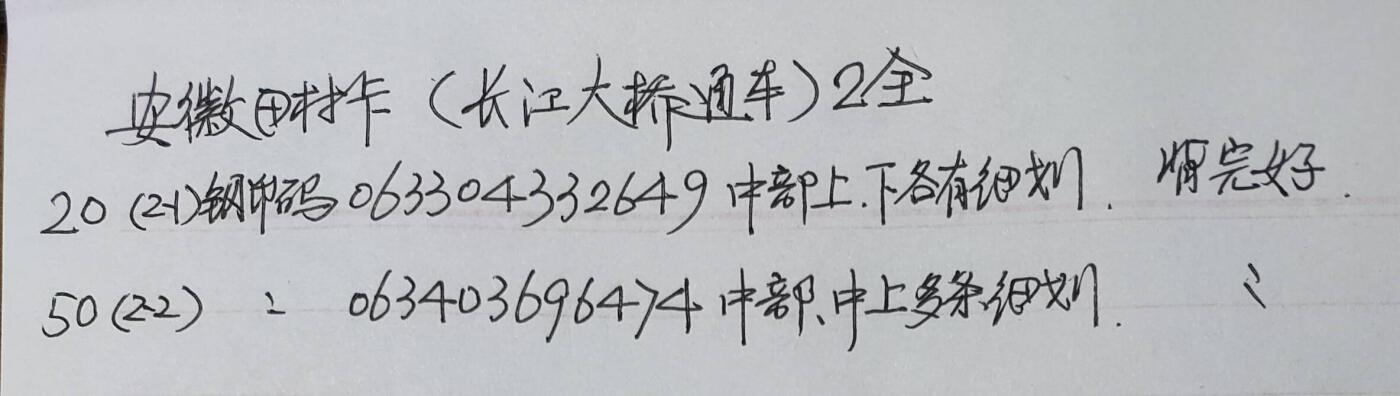 安徽田村卡（长江大桥通车）2全
20（2-1）钢印码063304332649中部上.下各有细划. 角完好.
50（2-2） 〃 063403696474中部、中上多条细划. 〃